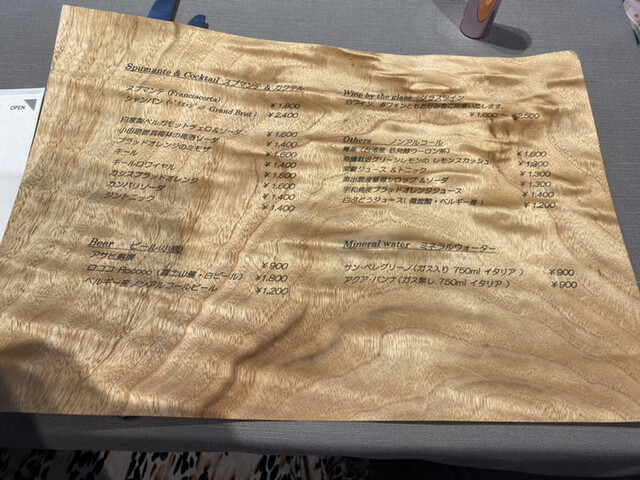 OPEN
Spumante & Cocktail スプマンテ & カクテル
スプマンテ (Franciacorta) ¥1,800
シャンパン Grand Brut ) ¥2,400
自家製ベルガモットチェロ&ソーダ ¥1,600
¥1,400
ブラッドオレンジのミモザ ¥1,600
キール ¥1,400
キールロワイヤル ¥1,600
カシスブラッドオレンジ ¥1,600
カンパリソーダ ¥1,400
ジントニック ¥1,400
Beer ビール(小瓶)
アサヒ ¥900
ロココ Rococo (富士山麓・白ビール) ¥1,800
ベルギー産ノンアルコールビール ¥1,200
Wine by the glass グラスワイン
白ワイン、赤ワインともお好みをご用意いたします。
¥2,500
Others ノンアルコール
¥1,600
グリーンレモンの レモンスカッシュ ¥1,300
ジュース &トニック ¥1,300
シロップ &ソーダ ¥1,300
ブラッドオレンジジュース ¥1,400
白ぶどうジュース( 微炭酸・ベルギー産 ) ¥1,200
Mineral water ミネラルウォーター
サン・ペレグリーノ(ガス入り 750ml イタリア ) ¥900
アクア・パンナ(ガス無し 750ml イタリア ) ¥900